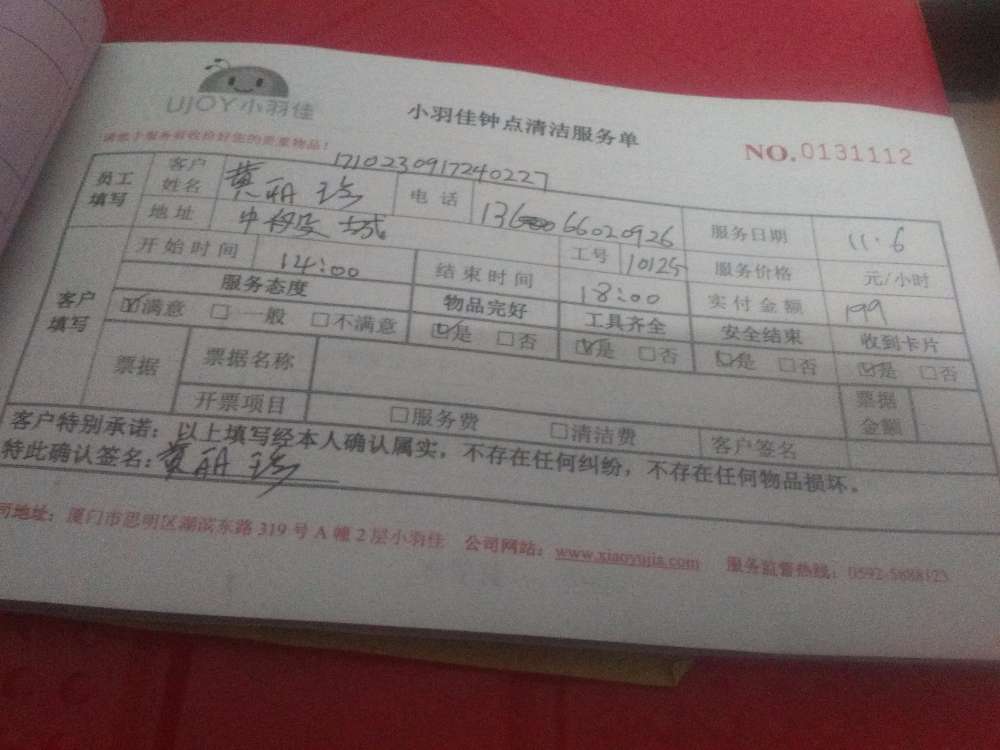 UJOY小羽佳
小羽佳钟点清洁服务单
请您于服务前收检好您的贵重物品!
NO.0131112
1710230917240227
员工填写 客户姓名 黄丽 电话 1366020926 服务日期 11.6
地址 中 城 工号 10125 服务价格 元/小时
客户填写 开始时间 14:00 结束时间 18:00 实付金额 199
服务态度 物品完好 工具齐全 安全结束 收到卡片
☑满意 □一般 □不满意 ☑是 □否 ☑是 □否 ☑是 □否 ☑是 □否
票据 票据名称 票据金额
开票项目 □服务费 □清洁费 客户签名
客户特别承诺:以上填写经本人确认属实,不存在任何纠纷,不存在任何物品损坏。
特此确认签名:黄丽
司地址:厦门市思明区湖滨东路 319 号 A 幢 2 层小羽佳 公司网站:www.xiaoyujia.com 服务监督热线:0592-5688123